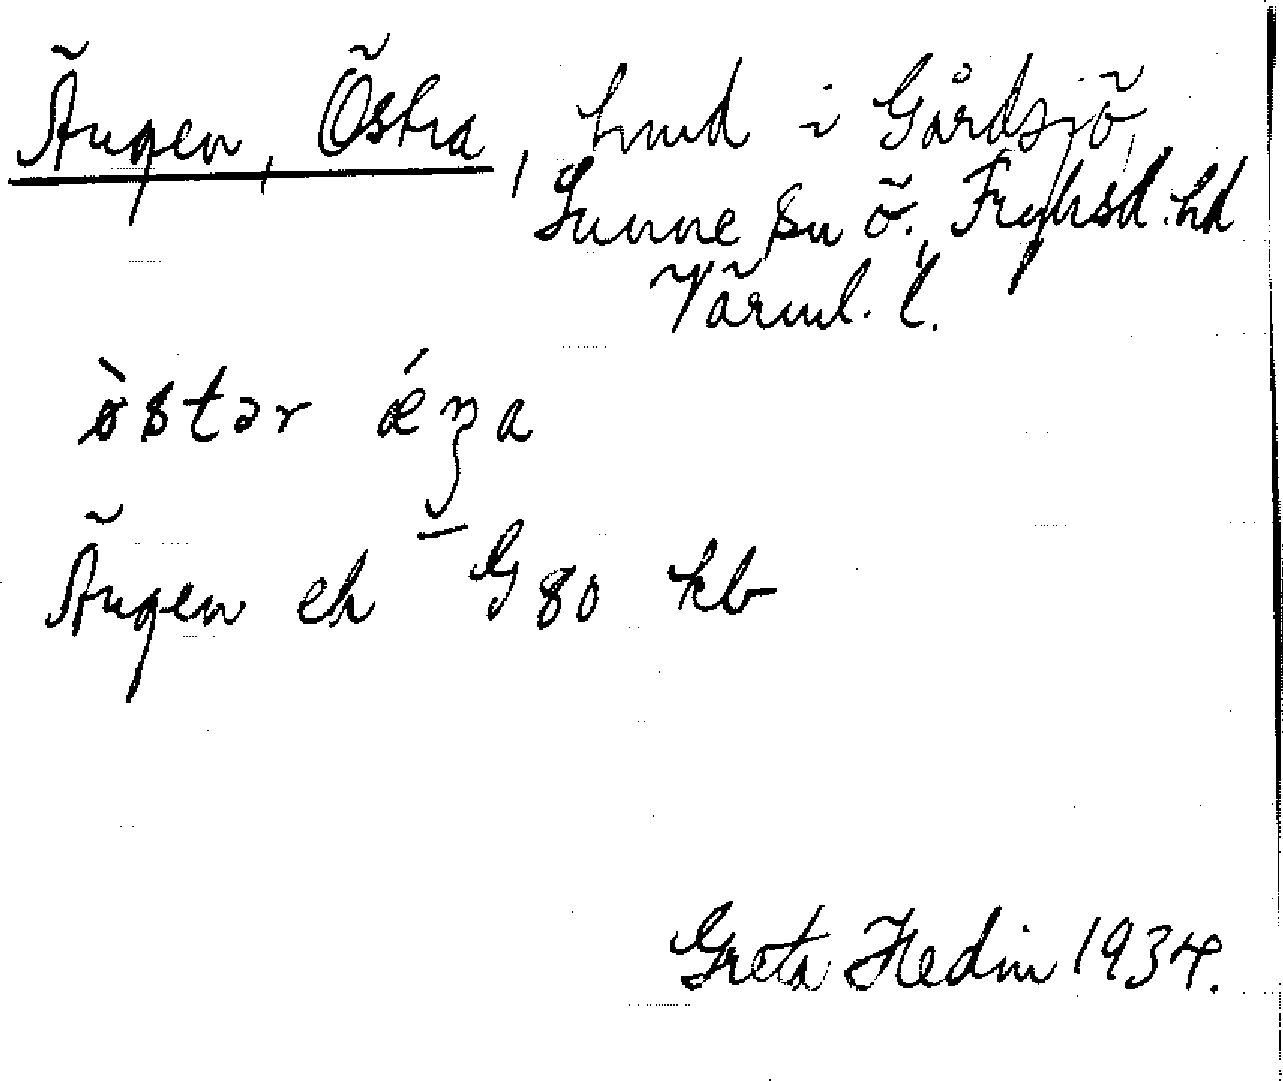 Ängen, Östra, hmd i Gårdsjö,
Sunne sn ö. Fryksd. hd
Värml. l.
òstər ǽŋa
Ängen ek G 80 kb
Greta Hedin 1934.